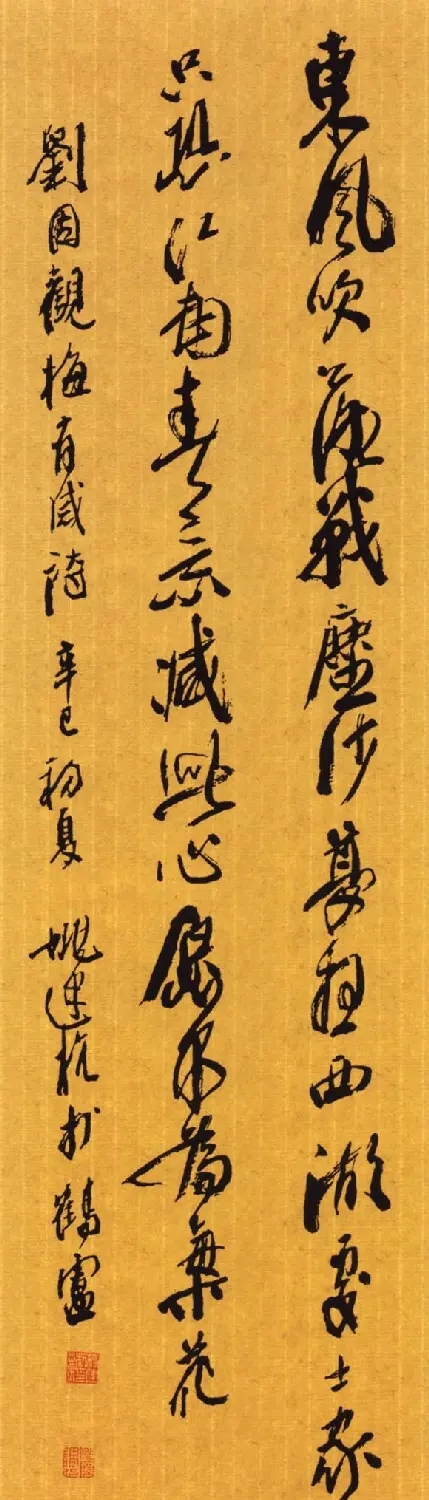 東風吹落戰塵沙夢想西湖處士家
只恐江南春意減此心原不為梅花
劉因觀梅有感詩 辛巳初夏 姚建杭於鶴廬